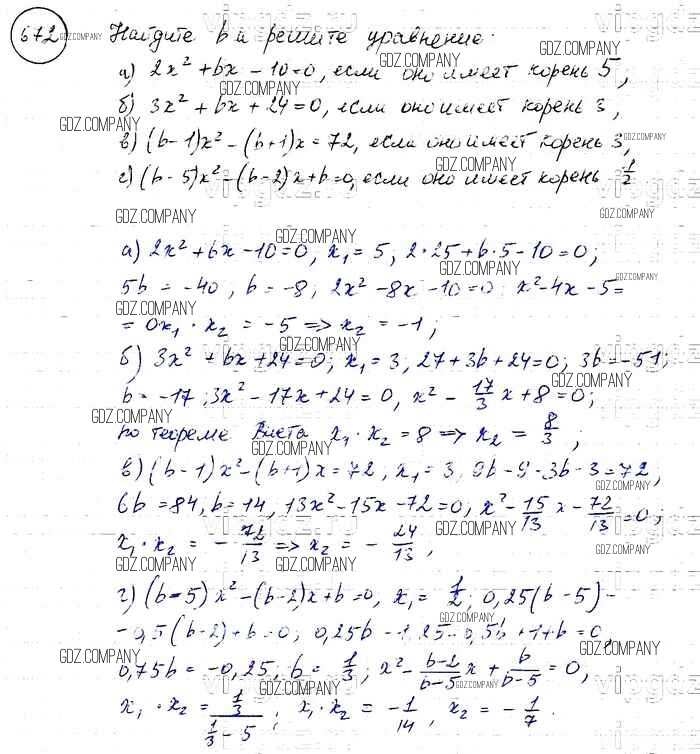 672 Найдите b и решите уравнение.
а) 2x² + bx - 10 = 0, если оно имеет корень 5,
б) 3x² + bx + 24 = 0, если оно имеет корень 3,
в) (b-1)x² - (b+1)x = 72, если оно имеет корень 3,
г) (b-5)x² - (b-2)x + b = 0, если оно имеет корень 1/2.
а) 2x² + bx - 10 = 0, x₁ = 5, 2·25 + b·5 - 10 = 0;
5b = -40, b = -8; 2x² - 8x - 10 = 0 x² - 4x - 5 =
= 0 x₁ · x₂ = -5 => x₂ = -1;
б) 3x² + bx + 24 = 0; x₁ = 3, 27 + 3b + 24 = 0; 3b = -51;
b = -17; 3x² - 17x + 24 = 0, x² - 17/3 x + 8 = 0;
по теореме Виета x₁ · x₂ = 8 => x₂ = 8/3;
в) (b-1)x² - (b+1)x = 72, x₁ = 3, 9b - 9 - 3b - 3 = 72,
6b = 84, b = 14, 13x² - 15x - 72 = 0; x² - 15/13 x - 72/13 = 0;
x₁ · x₂ = - 72/13 => x₂ = - 24/13,
г) (b-5)x² - (b-2)x + b = 0, x₁ = 1/2; 0,25(b-5) -
- 0,5(b-2) + b = 0; 0,25b - 1,25 - 0,5b + 1 + b = 0,
0,75b = -0,25, b = 1/3; x² - (b-2)/(b-5) x + b/(b-5) = 0,
x₁ · x₂ = (1/3)/(1/3 - 5); x₁ · x₂ = -1/14, x₂ = -1/7.